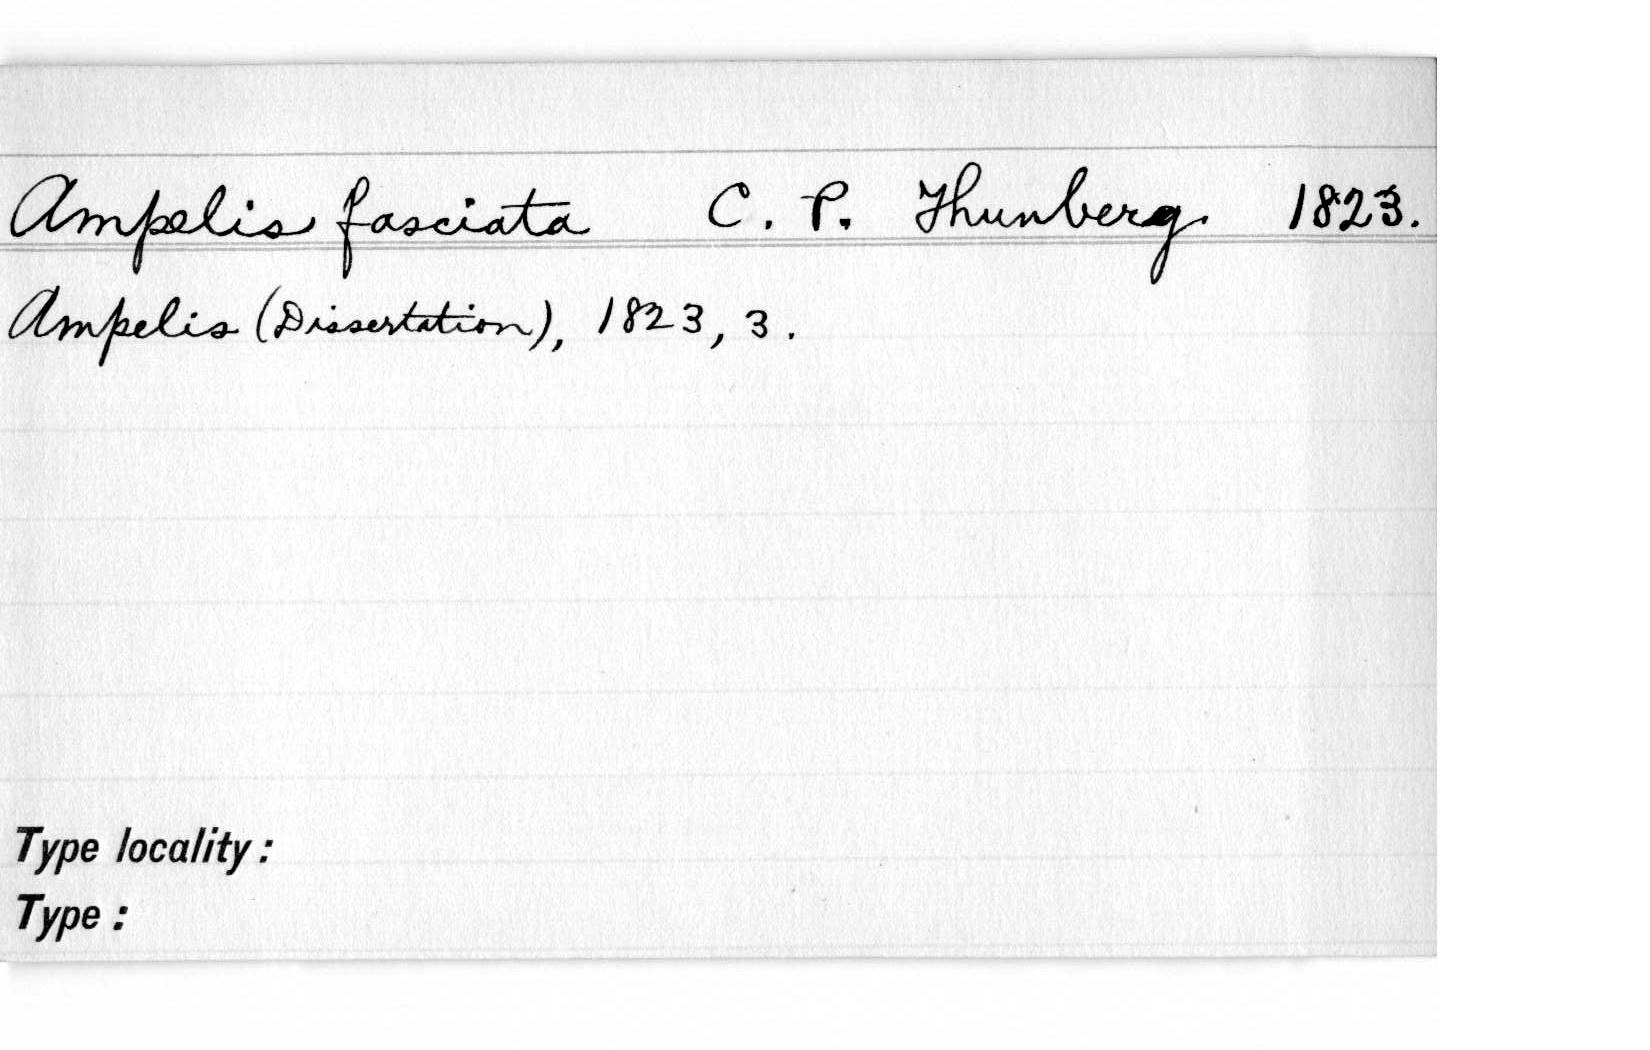 Ampelis fasciata C. P. Thunberg. 1823.
Ampelis (Dissertation), 1823, 3.
Type locality :
Type :